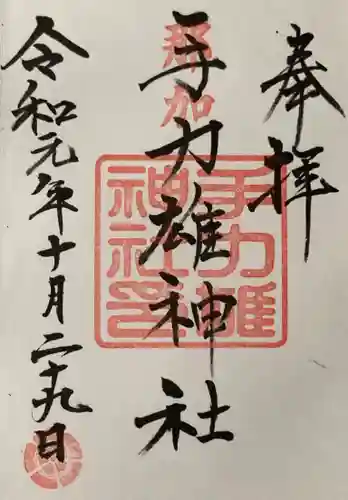 奉拝
手力雄神社
那加
手力雄
神社印
令和元年十月二十九日